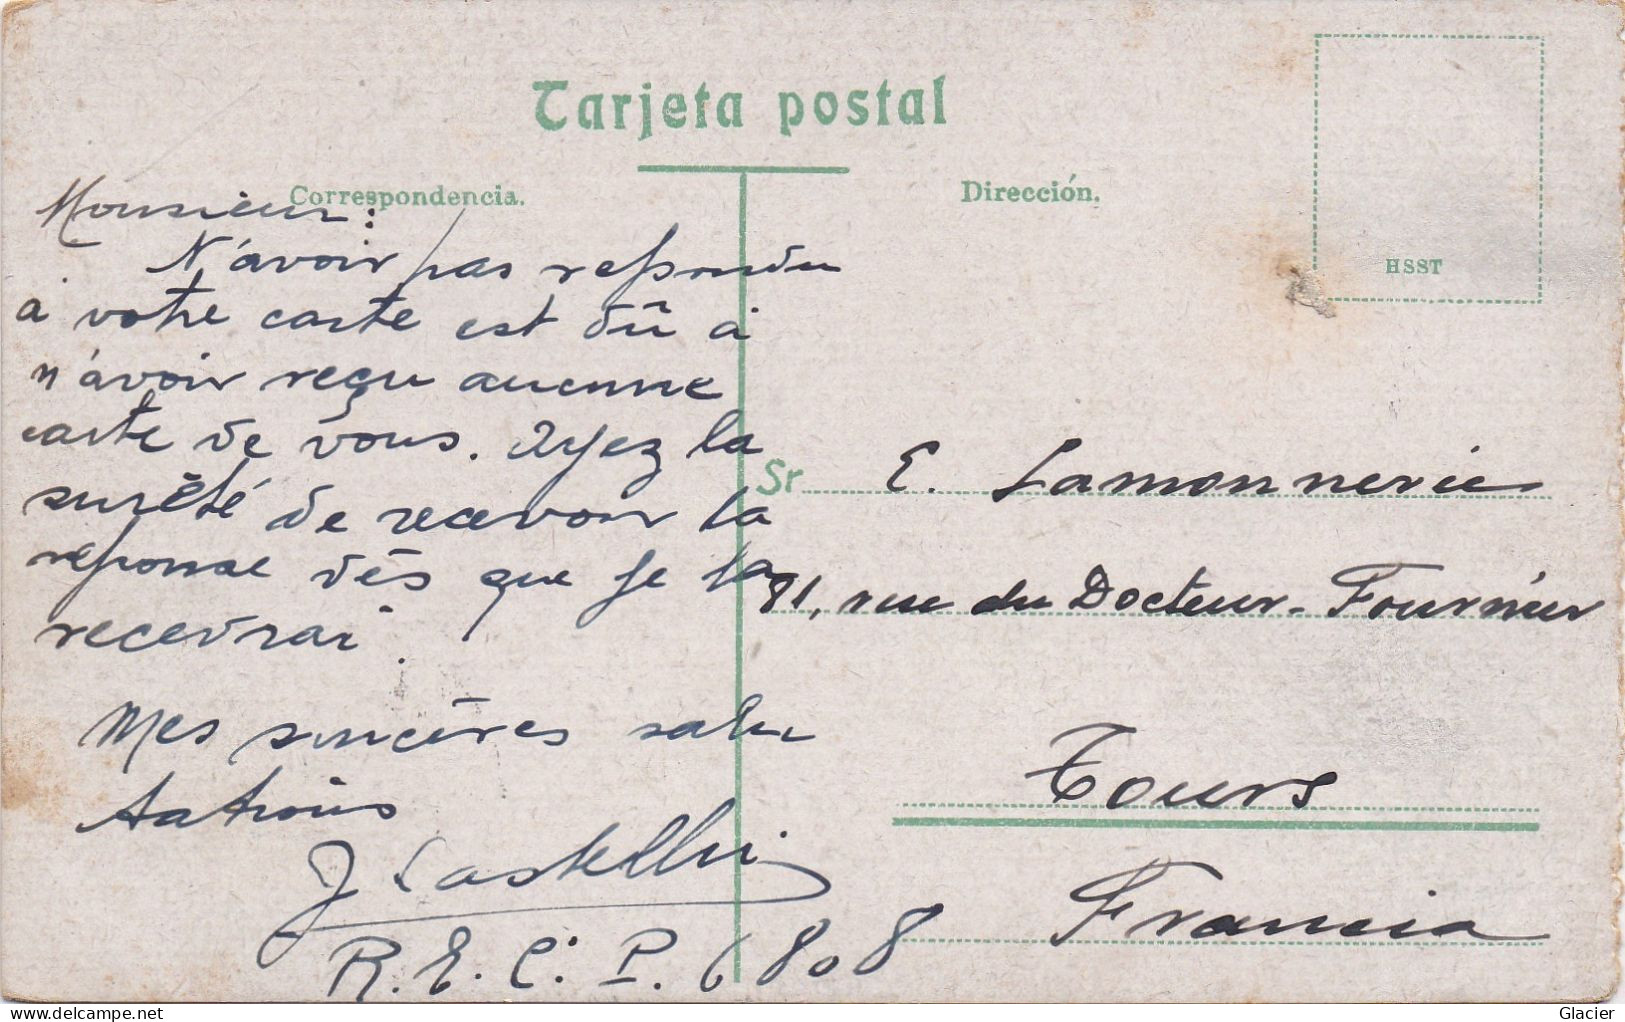 Tarjeta postal
Correspondencia.
Dirección.
HSST
Monsieur:
N'avoir pas repondu
à votre carte est dû à
n'avoir reçu aucune
carte de vous. Ayez la
surêté de recevoir la
reponse dès que je la
recevrai.
Mes sincères salu
tations
J Castellvi
R.E.C. P. 6808
Sr E. Lamonnerie
81, rue du Docteur-Fournier
Tours
Francia
www.delcampe.net
Glacier